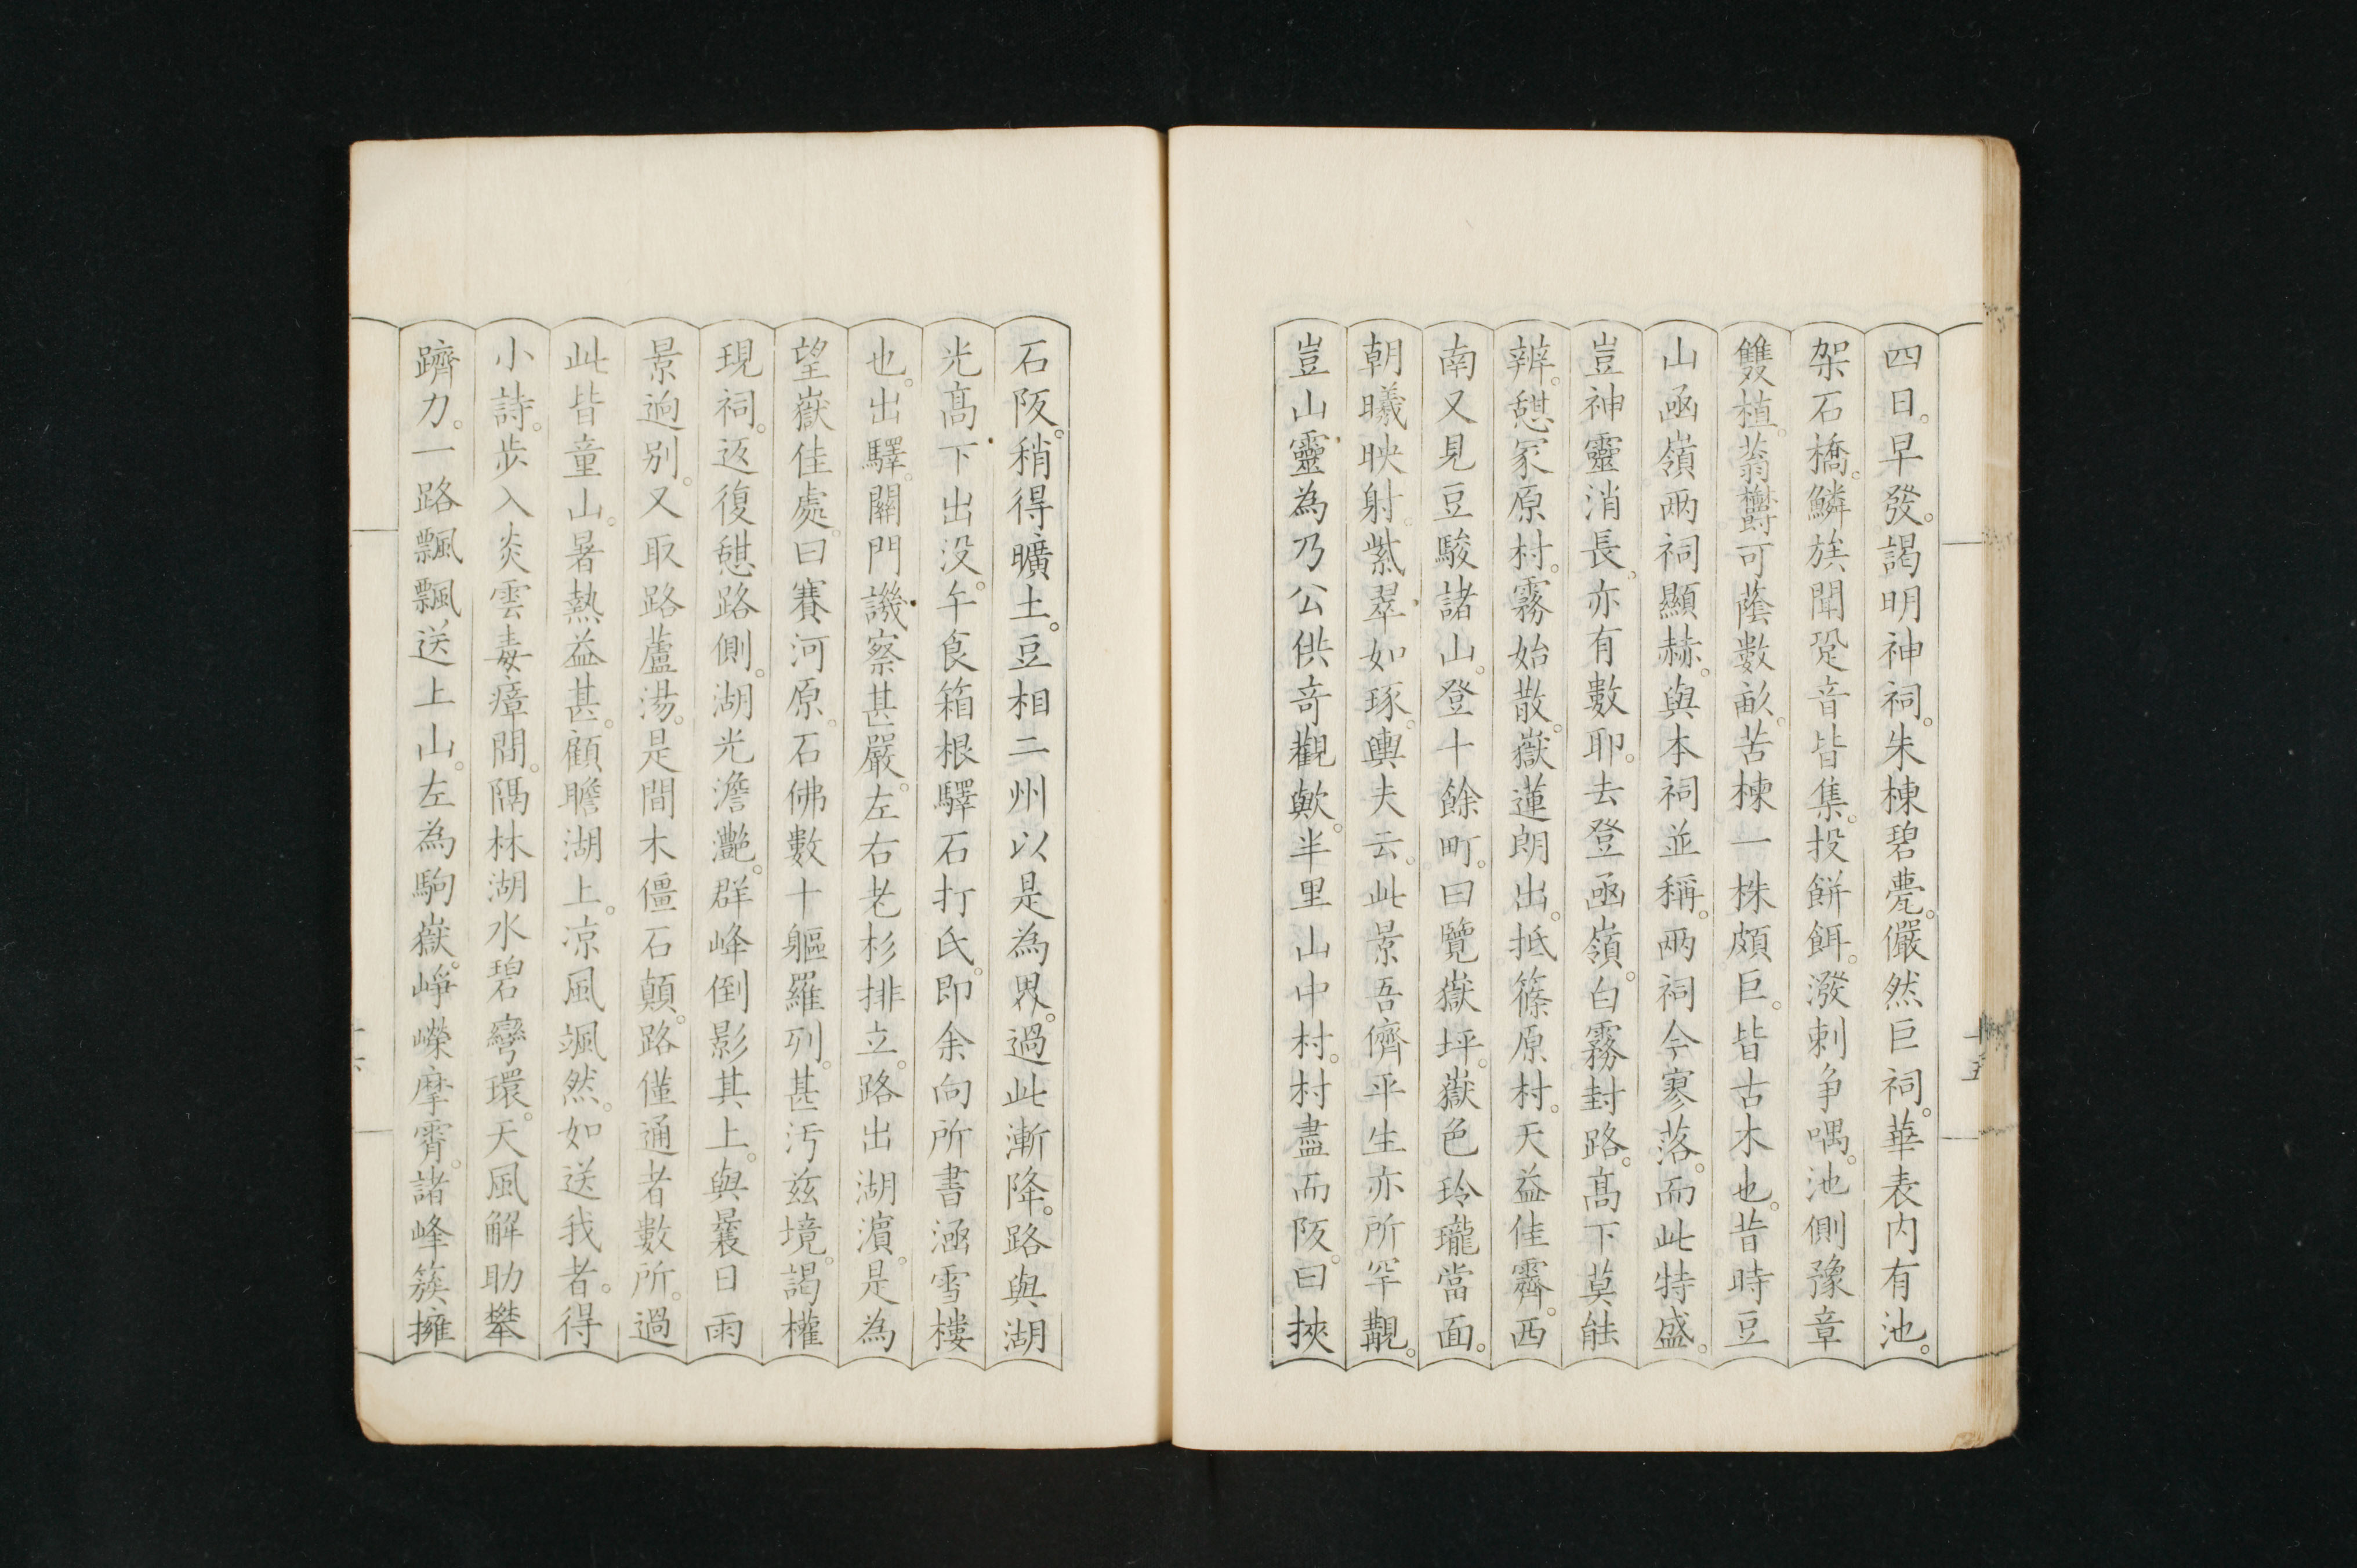 四日。早發。謁明神祠。朱棟碧甍。儼然巨祠。華表内有池。
架石橋。鱗族聞跫音皆集。投餅餌。潑剌争喁。池側豫章
雙植。蓊欝可蔭數畝。苦楝一株頗巨。皆古木也。昔時豆
山凾嶺兩祠顯赫。與本祠並稱。兩祠今寥落。而此特盛。
豈神靈消長。亦有數耶。去登凾嶺。白霧封路。髙下莫能
辨。憇冢原村。霧始散。嶽蓮朗出。抵篠原村。天益佳霽。西
南又見豆駿諸山。登十餘町。曰覽嶽坪。嶽色玲瓏當面。
朝曦映射。紫翠如琢。輿夫云。此景吾儕平生亦所罕覯。
豈山靈為乃公供奇觀歟。半里山中村。村盡而阪。曰挾
石阪。稍得曠土。豆相二州以是為界。過此漸降。路與湖
光髙下出没。午食箱根驛石打氏。即余向所書涵雪樓
也。出驛。關門譏察甚嚴。左右老杉排立。路出湖濵。是為
望嶽佳處。曰賽河原。石佛數十軀羅列。甚汚兹境。謁權
現祠。返復憇路側。湖光澹灔。群峰倒影其上。與曩日雨
景逈別。又取路蘆湯。是間木僵石顛。路僅通者數所。過
此皆童山。暑熱益甚。顧瞻湖上。凉風颯然。如送我者。得
小詩。步入炎雲毒瘴間。隔林湖水碧彎環。天風解助攀
躋力。一路飄飄送上山。左為駒嶽。崢嶸摩霄。諸峰簇擁